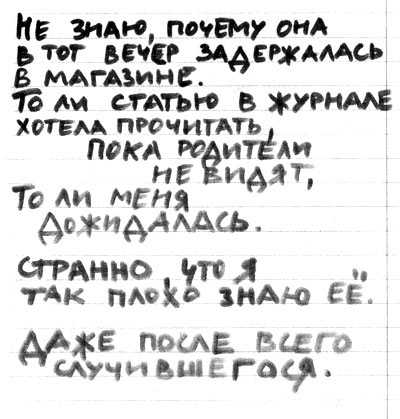 НЕ ЗНАЮ, ПОЧЕМУ ОНА
В ТОТ ВЕЧЕР ЗАДЕРЖАЛАСЬ
В МАГАЗИНЕ.
ТО ЛИ СТАТЬЮ В ЖУРНАЛЕ
ХОТЕЛА ПРОЧИТАТЬ,
ПОКА РОДИТЕЛИ
НЕ ВИДЯТ,
ТО ЛИ МЕНЯ
ДОЖИДАЛАСЬ.
СТРАННО, ЧТО Я
ТАК ПЛОХО ЗНАЮ ЕЁ.
ДАЖЕ ПОСЛЕ ВСЕГО
СЛУЧИВШЕГОСЯ.